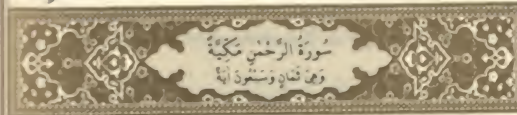 سُورَةُ الرَّحْمٰنِ مَكِّيَّةٌ
وَهِىَ ثَمَانٍ وَسَبْعُونَ اٰيَةً